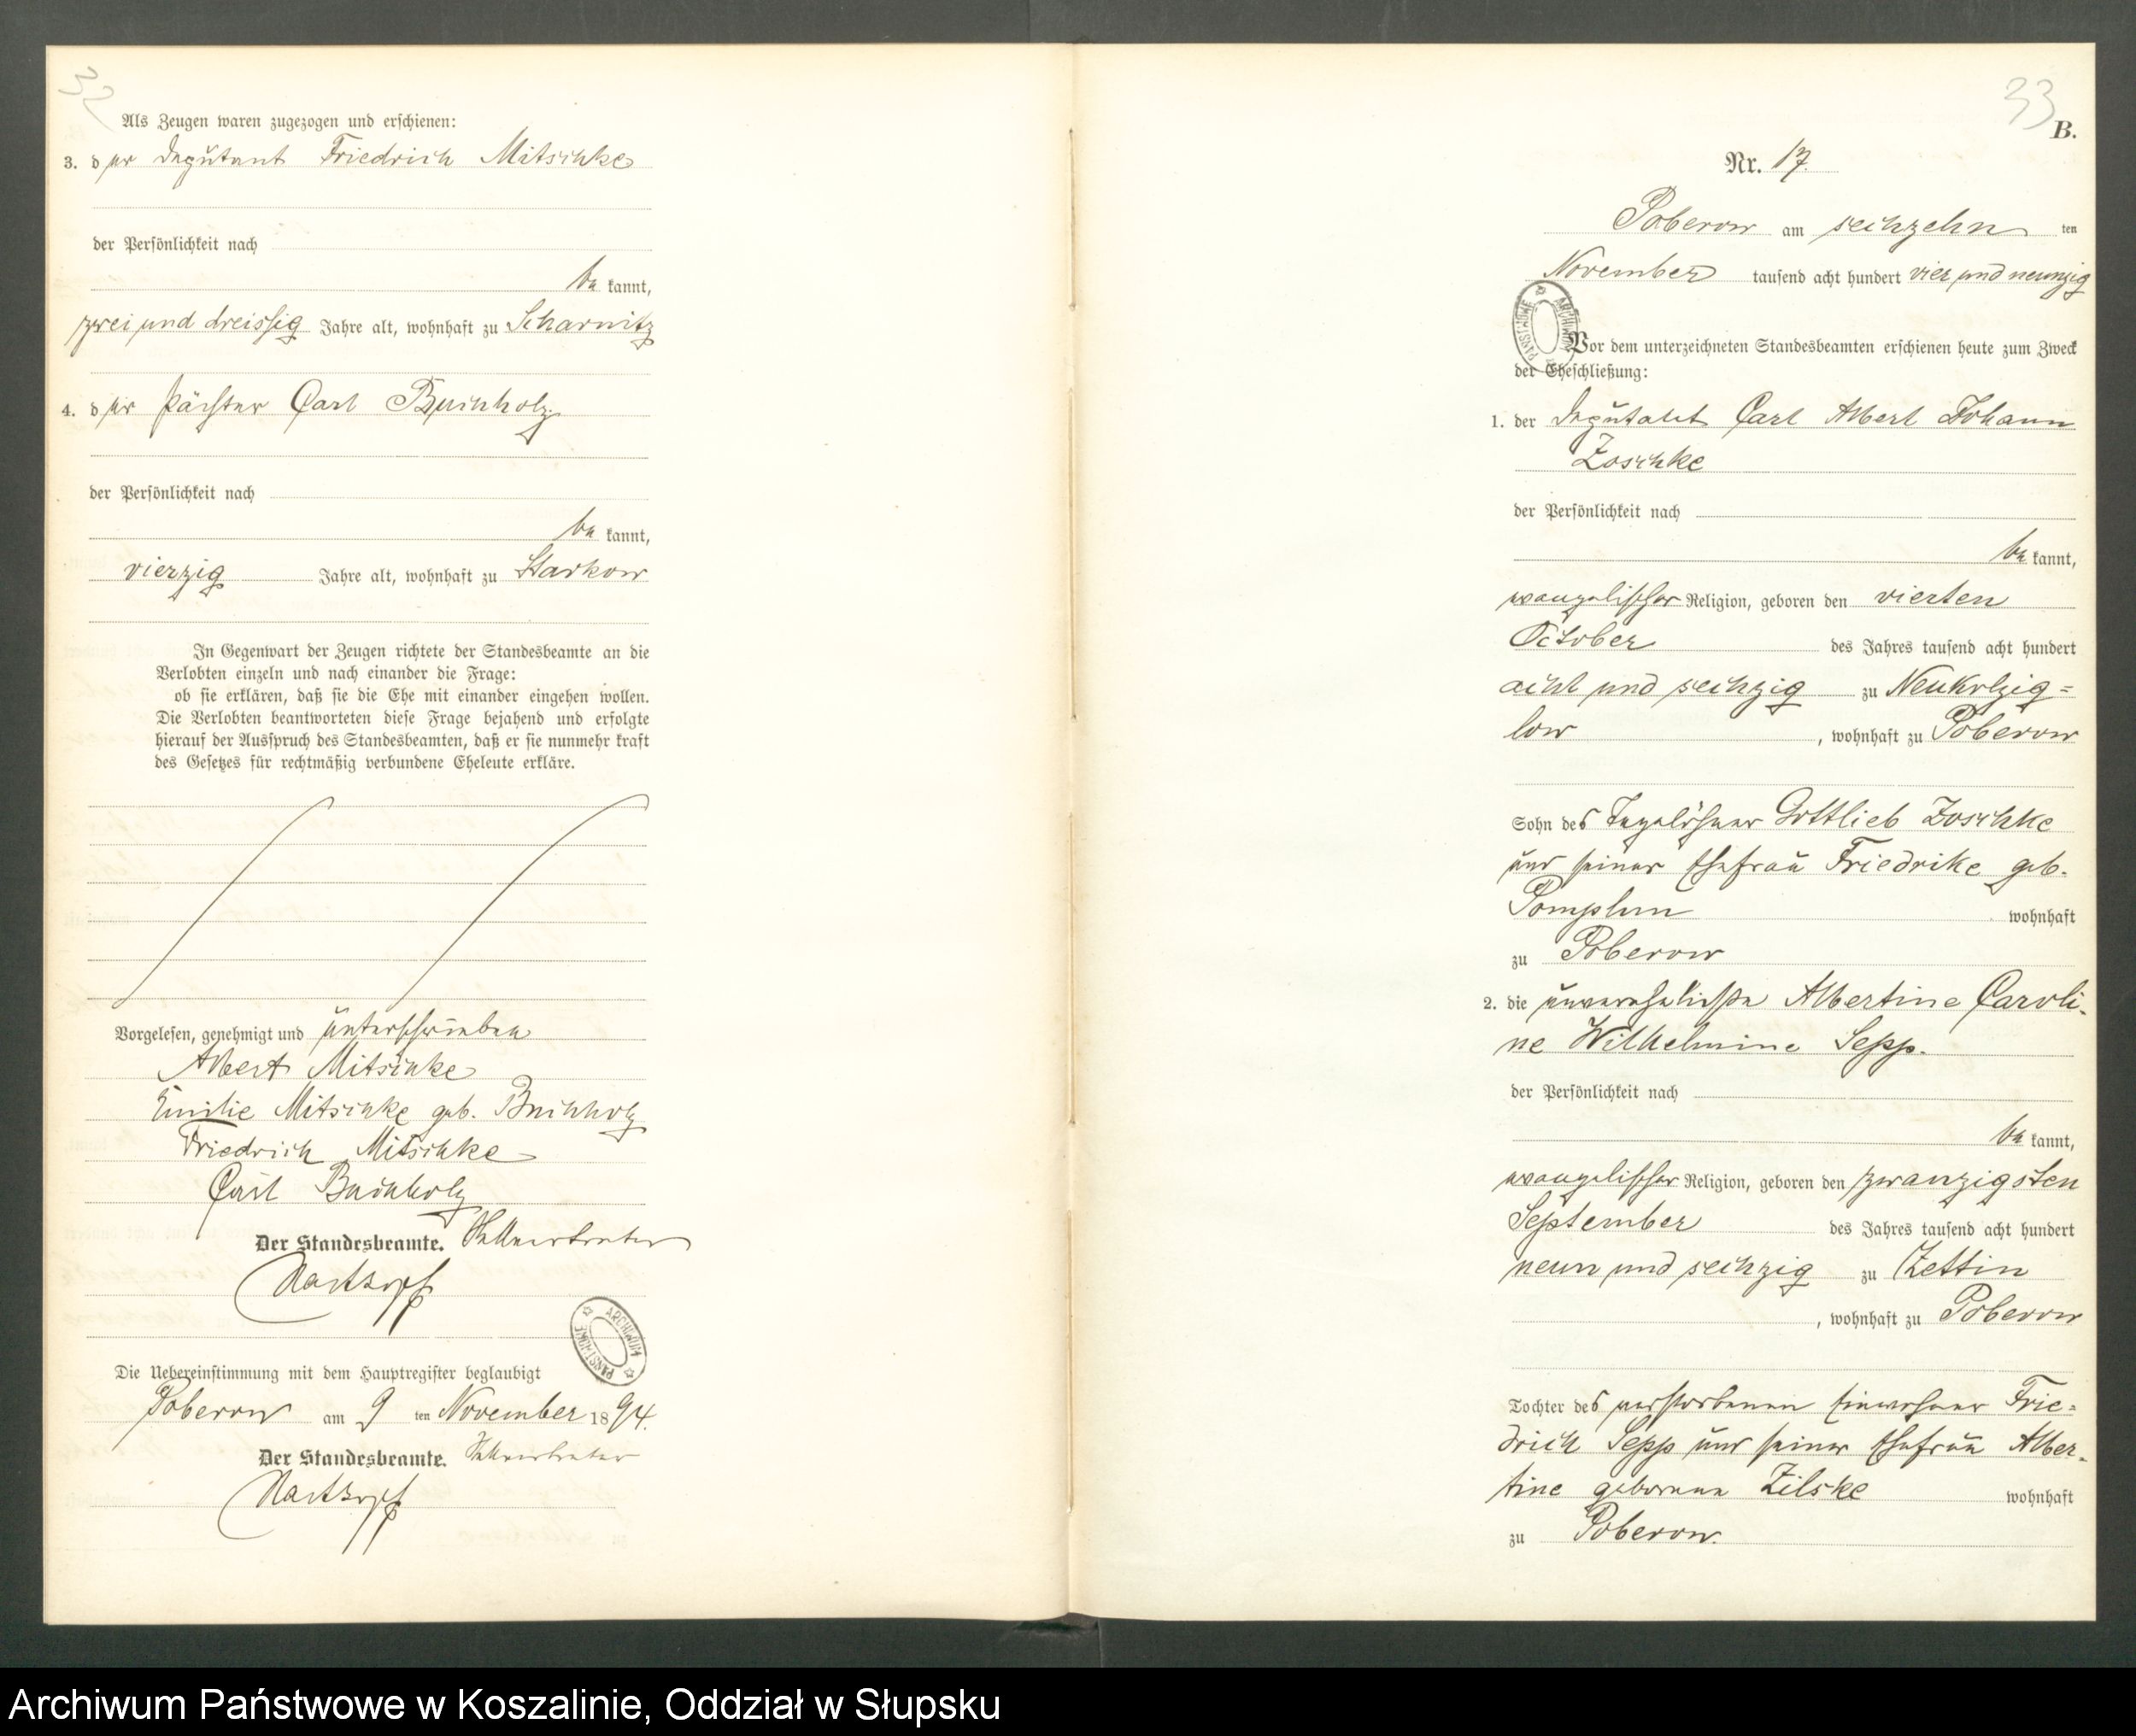 32
Als Zeugen waren zugezogen und erschienen:
3. der Deputant Friedrich Mitschke
der Persönlichkeit nach
be kannt,
zwei und dreissig Jahre alt, wohnhaft zu Scharnitz
4. der Pächter Carl Buchholz
der Persönlichkeit nach
be kannt,
vierzig Jahre alt, wohnhaft zu Starkow
In Gegenwart der Zeugen richtete der Standesbeamte an die
Verlobten einzeln und nach einander die Frage:
ob sie erklären, daß sie die Ehe mit einander eingehen wollen.
Die Verlobten beantworteten diese Frage bejahend und erfolgte
hierauf der Ausspruch des Standesbeamten, daß er sie nunmehr kraft
des Gesetzes für rechtmäßig verbundene Eheleute erkläre.
Vorgelesen, genehmigt und unterschrieben
Albert Mitschke
Emilie Mitschke geb. Buchholz
Friedrich Mitschke
Carl Buchholz
Der Standesbeamte. Stellvertreter
Hartkopf
ARCHIWUM PAŃSTWOWE
Die Uebereinstimmung mit dem Hauptregister beglaubigt
Poberow am 9 ten November 1894.
Der Standesbeamte. Stellvertreter
Hartkopf
33
B.
Nr. 17.
Poberow am sechzehn ten
November tausend acht hundert vier und neunzig
ARCHIWUM PAŃSTWOWE
Vor dem unterzeichneten Standesbeamten erschienen heute zum Zweck
der Eheschließung:
1. der Deputant Carl Albert Johann
Zoschke
der Persönlichkeit nach
be kannt,
evangelischer Religion, geboren den vierten
October des Jahres tausend acht hundert
acht und sechzig zu Neukolzig=
low, wohnhaft zu Poberow
Sohn des Tagelöhner Gottlieb Zoschke
und seiner Ehefrau Friedrike geb.
Pomplun wohnhaft
zu Poberow
2. die unverehelichte Albertine Caroli-
ne Wilhelmine Sepp.
der Persönlichkeit nach
be kannt,
evangelischer Religion, geboren den zwanzigsten
September des Jahres tausend acht hundert
neun und sechzig zu Zettin
, wohnhaft zu Poberow
Tochter des verstorbenen Einwohner Frie=
drich Sepp und seiner Ehefrau Alber-
tine geborene Zilske wohnhaft
zu Poberow.
Archiwum Państwowe w Koszalinie, Oddział w Słupsku